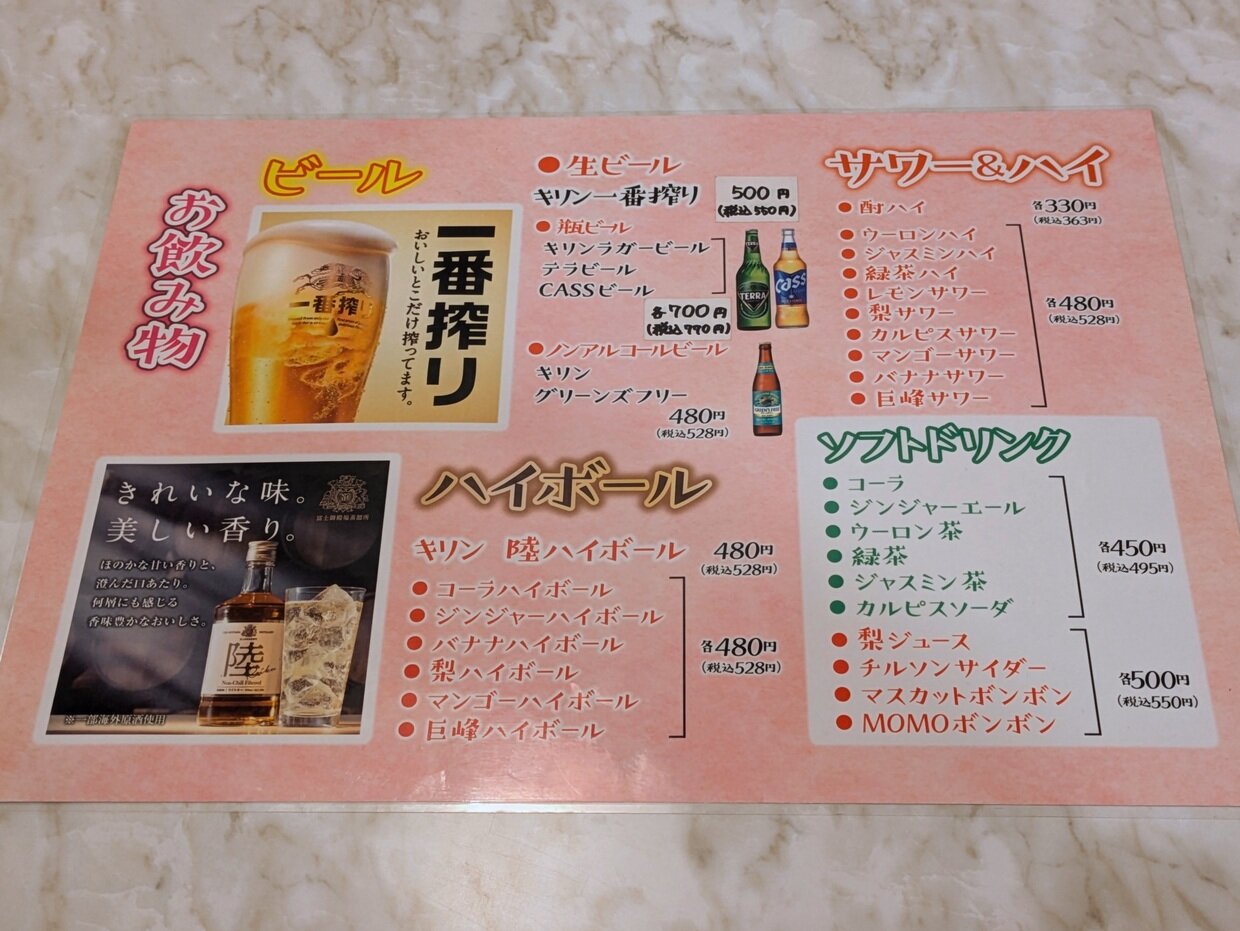 お飲み物
ビール
一番搾り
一番搾り
おいしいとこだけ搾ってます。
●生ビール
キリン一番搾り 500円
(税込550円)
●瓶ビール
キリンラガービール
テラビール
CASSビール
TERRA
Cass
各700円
(税込770円)
●ノンアルコールビール
キリン
グリーンズフリー
480円
(税込528円)
サワー&ハイ
●酎ハイ 各330円
(税込363円)
●ウーロンハイ
●ジャスミンハイ
●緑茶ハイ
●レモンサワー
●梨サワー
●カルピスサワー
●マンゴーサワー
●バナナサワー
●巨峰サワー
各480円
(税込528円)
きれいな味。
美しい香り。
富士御殿場蒸溜所
ほのかな甘い香りと、
澄んだ口あたり。
何層にも感じる
香味豊かなおいしさ。
陸
Non-Chill Filtered
※一部海外原酒使用
ハイボール
キリン 陸ハイボール 480円
(税込528円)
●コーラハイボール
●ジンジャーハイボール
●バナナハイボール
●梨ハイボール
●マンゴーハイボール
●巨峰ハイボール
各480円
(税込528円)
ソフトドリンク
●コーラ
●ジンジャーエール
●ウーロン茶
●緑茶
●ジャスミン茶
●カルピスソーダ
各450円
(税込495円)
●梨ジュース
●チルソンサイダー
●マスカットボンボン
●MOMOボンボン
各500円
(税込550円)